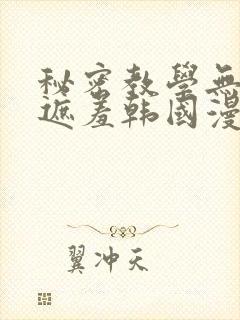 秘密教學無
遮羞韩國漫
翼冲天